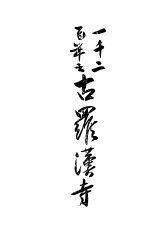 一千二
百年之
古羅漢寺